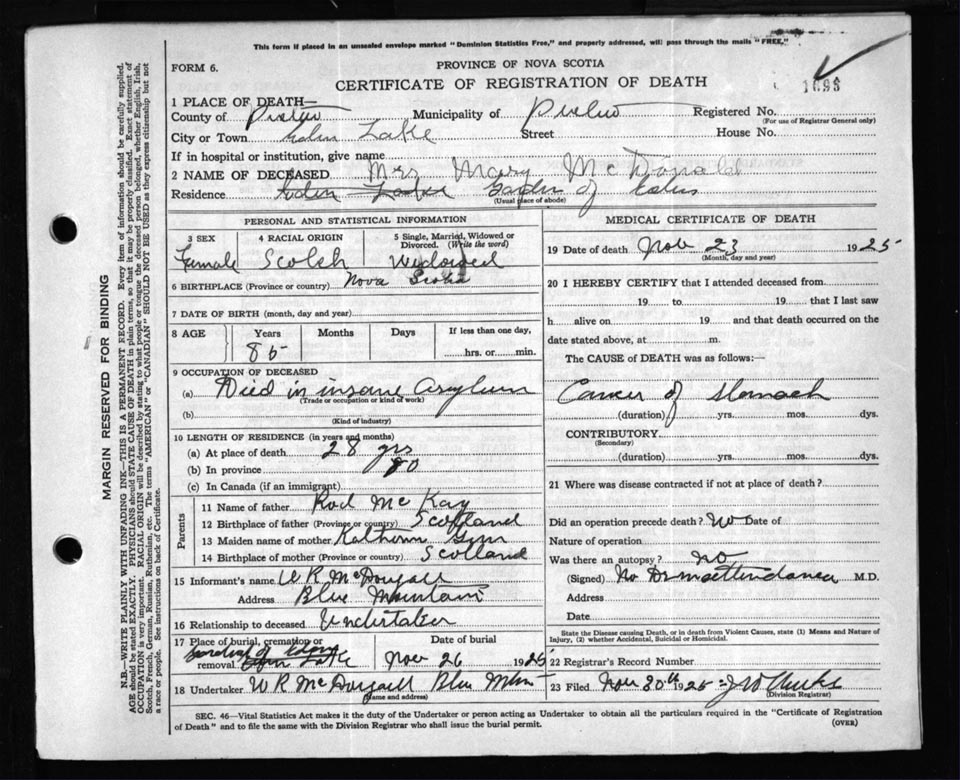 This form if placed in an unsealed envelope marked "Dominion Statistics Free," and properly addressed, will pass through the mails "FREE."
FORM 6.
PROVINCE OF NOVA SCOTIA
CERTIFICATE OF REGISTRATION OF DEATH
1 PLACE OF DEATH—
County of Pictou Municipality of Pictou Registered No.
(For use of Registrar General only)
City or Town Eden Lake Street House No.
If in hospital or institution, give name
2 NAME OF DECEASED Mrs Mary McDonald
Residence Eden Lake Garden of Eden
(Usual place of abode)
PERSONAL AND STATISTICAL INFORMATION
3 SEX
Female
4 RACIAL ORIGIN
Scotch
5 Single, Married, Widowed or Divorced. (Write the word)
Widowed
6 BIRTHPLACE (Province or country) Nova Scotia
7 DATE OF BIRTH (month, day and year)
8 AGE Years Months Days If less than one day,
85 hrs. or min.
9 OCCUPATION OF DECEASED
(a) Died in insane Asylum
(Trade or occupation or kind of work)
(b)
(Kind of industry)
10 LENGTH OF RESIDENCE (in years and months)
(a) At place of death 28 yrs
(b) In province 80
(c) In Canada (if an immigrant)
Parents
11 Name of father Rod McKay
12 Birthplace of father (Province or country) Scotland
13 Maiden name of mother
14 Birthplace of mother (Province or country) Scotland
15 Informant's name W R McDougall
Address Blue Mountain
16 Relationship to deceased Undertaker
17 Place of burial, cremation or removal. Date of burial
Nov 26 1925
18 Undertaker W R McDougall Blue Mtn
(Name and address)
MEDICAL CERTIFICATE OF DEATH
19 Date of death Nov 23 1925
(Month, day and year)
20 I HEREBY CERTIFY that I attended deceased from
19 to 19 that I last saw
h alive on 19 and that death occurred on the
date stated above, at m.
The CAUSE of DEATH was as follows:—
Cancer of Stomach
(duration) yrs. mos. dys.
CONTRIBUTORY
(Secondary)
(duration) yrs. mos. dys.
21 Where was disease contracted if not at place of death?
Did an operation precede death? No Date of
Nature of operation
Was there an autopsy? No
(Signed) No Dr in attendance M.D.
Address
Date
State the Disease causing Death, or in death from Violent Causes, state (1) Means and Nature of
Injury, (2) whether Accidental, Suicidal or Homicidal.
22 Registrar's Record Number
23 Filed Nov 30th 1925
(Division Registrar)
SEC. 46—Vital Statistics Act makes it the duty of the Undertaker or person acting as Undertaker to obtain all the particulars required in the "Certificate of Registration
of Death" and to file the same with the Division Registrar who shall issue the burial permit.
(OVER)
MARGIN RESERVED FOR BINDING
N.B.—WRITE PLAINLY WITH UNFADING INK—THIS IS A PERMANENT RECORD. Every item of information should be carefully supplied.
AGE should be stated EXACTLY. PHYSICIANS should STATE CAUSE OF DEATH in plain terms, so that it may be properly classified. Exact statement of
OCCUPATION is very important. RACIAL ORIGIN will be described by stating to what people or tongue the deceased person belonged, whether English, Irish,
Scotch, French, German, Russian, Ruthenian, etc. The terms "AMERICAN" or "CANADIAN" SHOULD NOT BE USED as they express citizenship but not
a race or people. See instructions on back of Certificate.